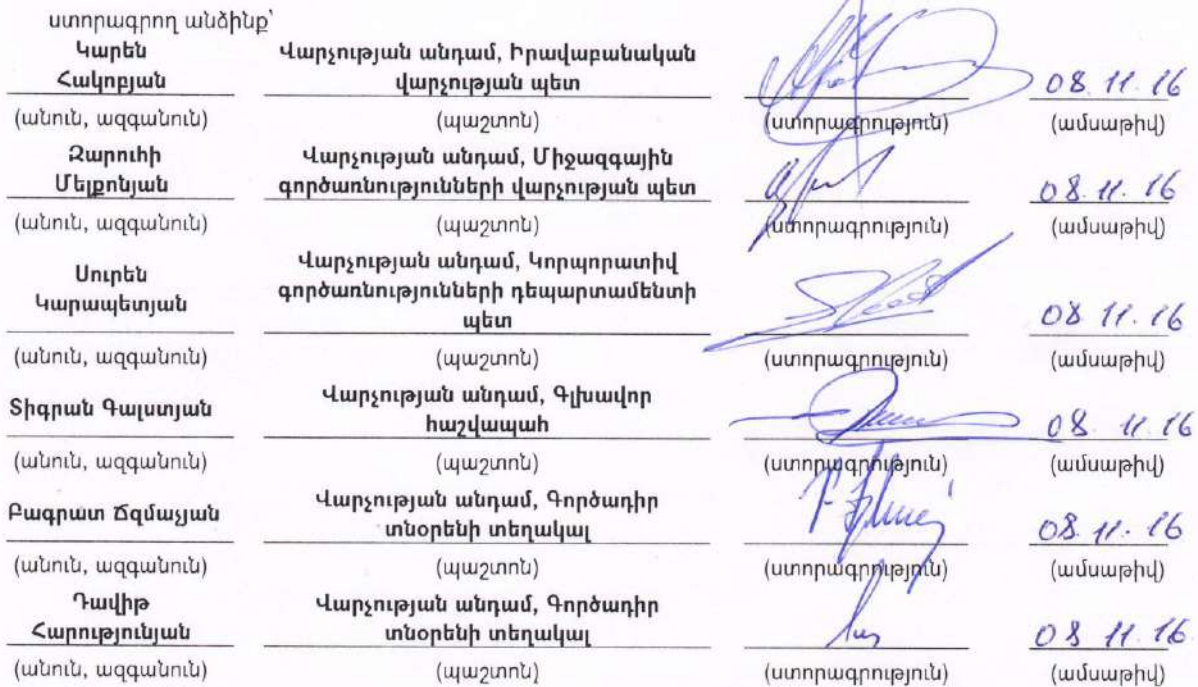 ստորագրող անձինք՝
Կարեն Վարչության անդամ, Իրավաբանական
Հակոբյան վարչության պետ 08.11.16
(անուն, ազգանուն) (պաշտոն) (ստորագրություն) (ամսաթիվ)
Զարուհի Վարչության անդամ, Միջազգային
Մելքոնյան գործառնությունների վարչության պետ 08.11.16
(անուն, ազգանուն) (պաշտոն) (ստորագրություն) (ամսաթիվ)
Սուրեն Վարչության անդամ, Կորպորատիվ
Կարապետյան գործառնությունների դեպարտամենտի
պետ 08.11.16
(անուն, ազգանուն) (պաշտոն) (ստորագրություն) (ամսաթիվ)
Տիգրան Գալստյան Վարչության անդամ, Գլխավոր
հաշվապահ 08.11.16
(անուն, ազգանուն) (պաշտոն) (ստորագրություն) (ամսաթիվ)
Բագրատ Ճզմաչյան Վարչության անդամ, Գործադիր
տնօրենի տեղակալ 08.11.16
(անուն, ազգանուն) (պաշտոն) (ստորագրություն) (ամսաթիվ)
Դավիթ Վարչության անդամ, Գործադիր
Հարությունյան տնօրենի տեղակալ 08.11.16.
(անուն, ազգանուն) (պաշտոն) (ստորագրություն) (ամսաթիվ)